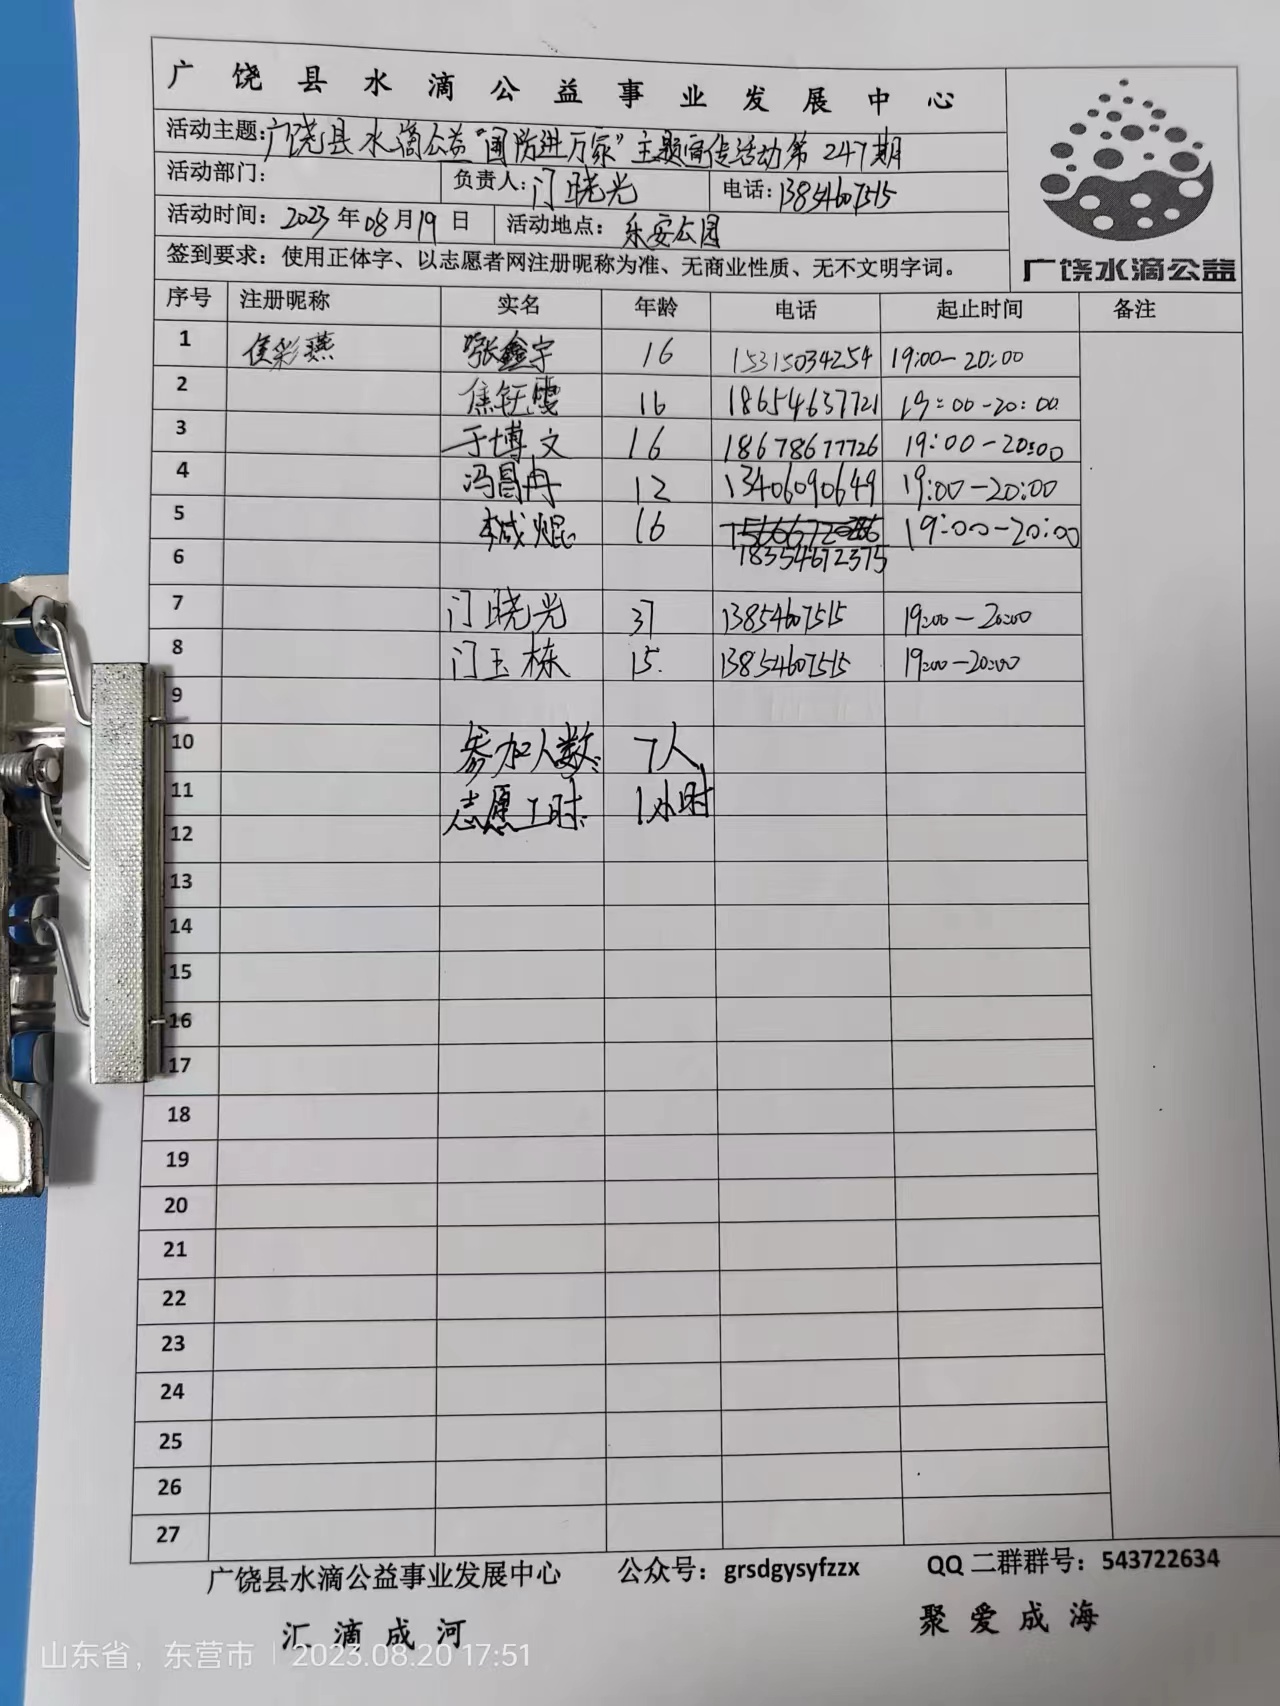 广饶县水滴公益事业发展中心
活动主题:广饶县水滴公益"国防进万家"主题宣传活动第247期
活动部门: 负责人:门晓光 电话:13854607515
活动时间:2023年08月19日 活动地点:乐安公园
签到要求:使用正体字、以志愿者网注册昵称为准、无商业性质、无不文明字词。
广饶水滴公益
序号 注册昵称 实名 年龄 电话 起止时间 备注
1 侯彩燕 张鑫宇 16 15315034254 19:00-20:00
2 焦钰雯 16 18654637721 19:00-20:00
3 于博文 16 18678677726 19:00-20:00
4 冯冒冉 12 13406090649 19:00-20:00
5 焜 16 19:00-20:00
6 18354672375
7 门晓光 37 13854607515 19:00-20:00
8 门玉栋 15. 13854607515 19:00-20:00
9
10 参加人数: 7人
11 志愿工时: 1小时
12
13
14
15
16
17
18
19
20
21
22
23
24
25
26
27
广饶县水滴公益事业发展中心 公众号:grsdgysyfzzx QQ二群群号:543722634
汇滴成河 聚爱成海
山东省,东营市 | 2023.08.20 17:51